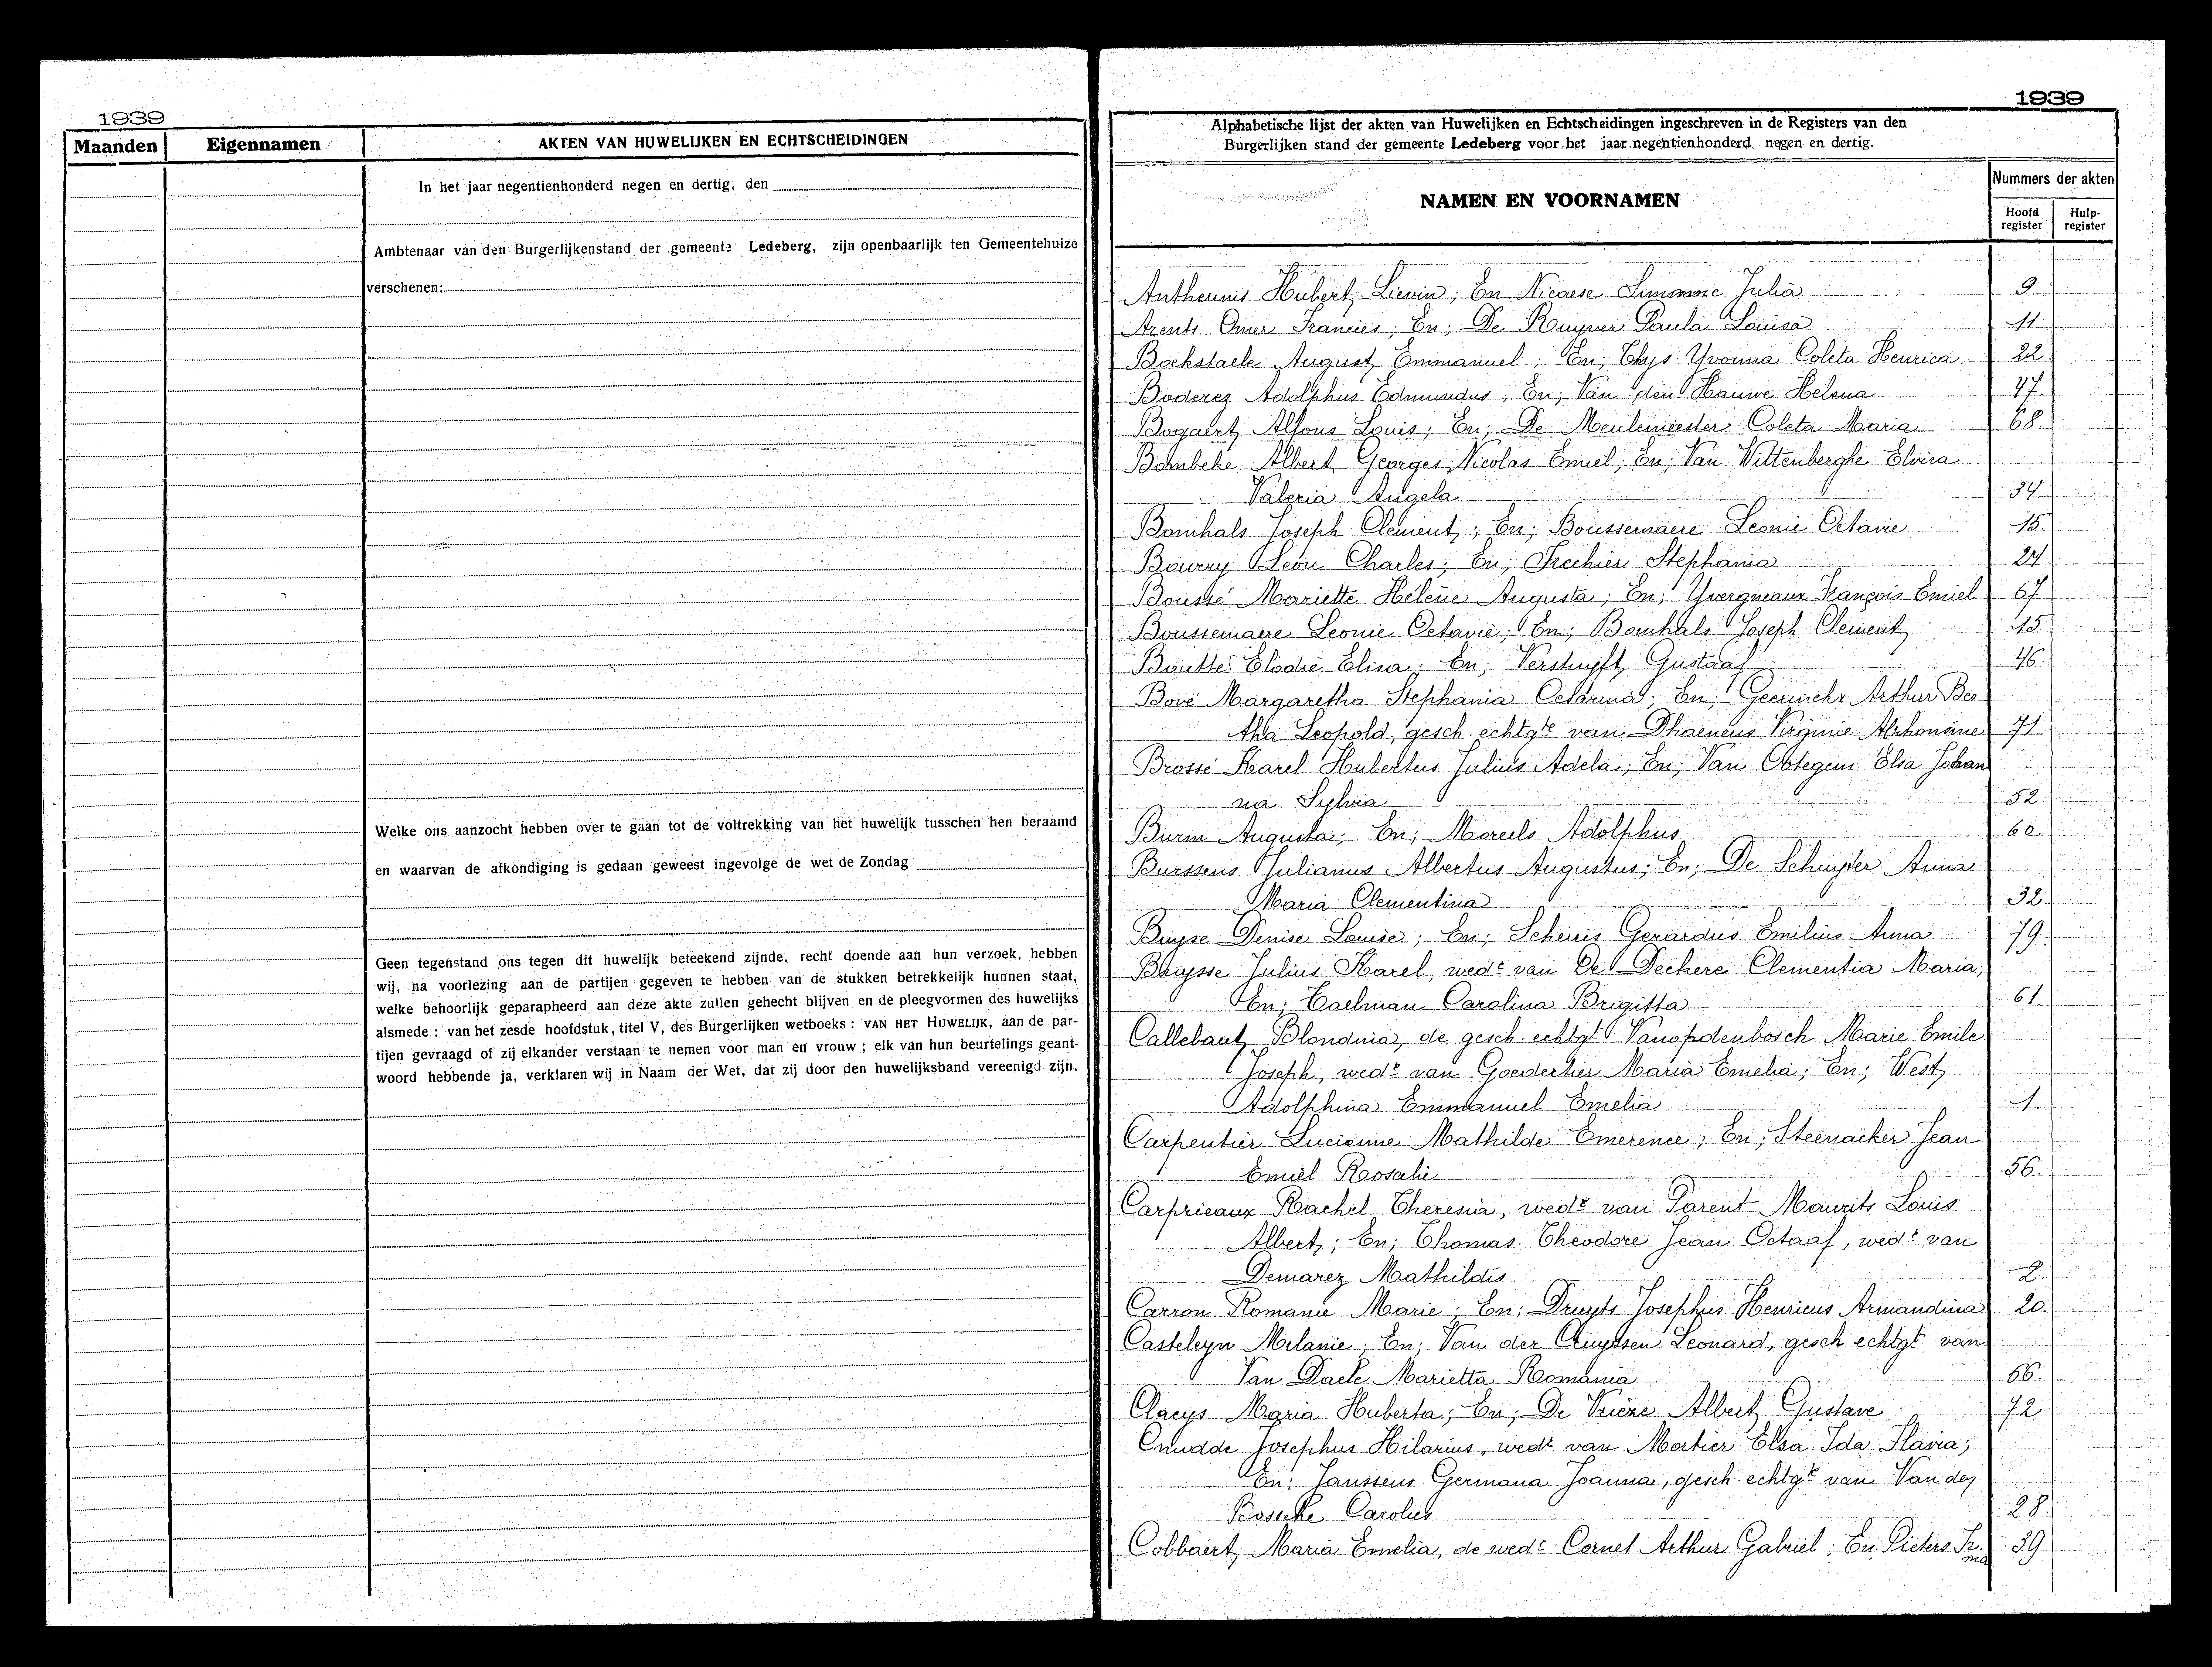 1939
Maanden Eigennamen AKTEN VAN HUWELIJKEN EN ECHTSCHEIDINGEN
In het jaar negentienhonderd negen en dertig, den
Ambtenaar van den Burgerlijkenstand der gemeente Ledeberg, zijn openbaarlijk ten Gemeentehuize
verschenen:
Welke ons aanzocht hebben over te gaan tot de voltrekking van het huwelijk tusschen hen beraamd
en waarvan de afkondiging is gedaan geweest ingevolge de wet de Zondag
Geen tegenstand ons tegen dit huwelijk beteekend zijnde, recht doende aan hun verzoek, hebben
wij, na voorlezing aan de partijen gegeven te hebben van de stukken betrekkelijk hunnen staat,
welke behoorlijk geparapheerd aan deze akte zullen gehecht blijven en de pleegvormen des huwelijks
alsmede : van het zesde hoofdstuk, titel V, des Burgerlijken wetboeks : VAN HET HUWELIJK, aan de par-
tijen gevraagd of zij elkander verstaan te nemen voor man en vrouw ; elk van hun beurtelings geant-
woord hebbende ja, verklaren wij in Naam der Wet, dat zij door den huwelijksband vereenigd zijn.
1939
Alphabetische lijst der akten van Huwelijken en Echtscheidingen ingeschreven in de Registers van den
Burgerlijken stand der gemeente Ledeberg voor het jaar negentienhonderd negen en dertig.
NAMEN EN VOORNAMEN
Nummers der akten
Hoofd register
Hulp-register
Antheunis Hubert Lievin; En Nicaese Simonne Julia 9
Arents Omer Francies; En; De Ruyver Paula Louisa 11
Bockstaele August Emmanuel; En; Thys Yvonna Coleta Henrica 22
Boderez Adolphus Edmundus; En; Van den Hauwe Helena 47
Bogaert Alfons Louis; En; De Meulemeester Coleta Maria 68.
Bombeke Albert Georges Nicolas Emiel; En; Van Wittenberghe Elvira
Valeria Angela 34
Bomhals Joseph Clement; En; Boussemaere Leonie Octavie 15.
Bourry Leon Charles; En; Frechier Stephania 24
Boussé Mariette Hélène Augusta; En; Yvergneaux François Emiel 67
Boussemaere Leonie Octavie; En; Bomhals Joseph Clement 15
Boutté Elodie Elisa; En; Verstuyft Gustaaf 46
Bové Margaretha Stephania Cesarina; En; Geerinckx Arthur Ber-
tha Leopold, gesch. echtgte van Dhaeneus Virginie Alphonsine 71
Brossé Karel Hubertus Julius Adela; En; Van Ootegem Elsa Johan
na Sylvia 52
Burm Augusta; En; Moreels Adolphus 60.
Burssens Julianus Albertus Augustus; En; De Schuyter Anna
Maria Clementina 32.
Buyse Denise Louise; En; Scheiris Gerardus Emilius Anna 79
Buysse Julius Karel, wedr van De Deckere Clementia Maria;
En; Taelman Carolina Brigitta 61
Callebaut Blondina, de gesch. echtgt Vanopdenbosch Marie Emile
Joseph, wedr van Goedertier Maria Emelia; En; West
Adolphina Emmanuel Emelia 1.
Carpentier Lucienne Mathilde Emerence; En; Steenacker Jean
Emiel Rosalie 56.
Carprieaux Rachel Theresia, wede van Parent Maurits Louis
Albert; En; Thomas Theodore Jean Octaaf, wedr van
Demarez Mathildis 2.
Carron Romanie Marie; En; Druyts Josephus Henricus Armandina 20.
Casteleyn Melanie; En; Van der Cruyssen Leonard, gesch echtgt van
Van Daele Marietta Romania 66.
Claeys Maria Huberta; En; De Vrieze Albert Gustave 72
Cnudde Josephus Hilarius, wedr van Mortier Elsa Ida Flavia;
En; Janssens Germana Joanna, gesch. echtgte van Van den
Bossche Carolus 28.
Cobbaert Maria Emelia, de wede Cornel Arthur Gabriel; En. Pieters Ir.
ma 39